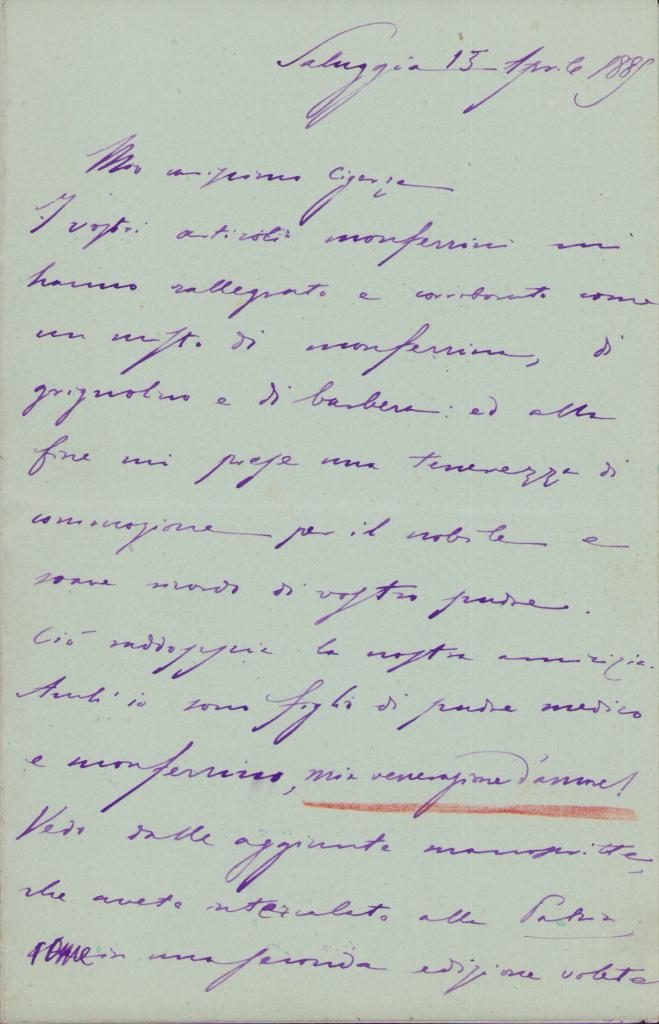 Saluggia 13 Aprile 1885
Mio carissimo
I vostri articoli monferrini mi
hanno rallegrato e corroborato come
un misto di monferrina, di
grignolino e di barbera: ed alla
fine mi prese una tenerezza di
commozione per il nobile e
soave ricordo di vostro padre.
Ciò raddoppia la nostra amicizia.
Anch'io sono figlio di padre medico
e monferrino, mia venerazione d'amore!
Vedo dalle aggiunte manoscritte,
che avete intercalato alla Patria,
come in una seconda edizione volete